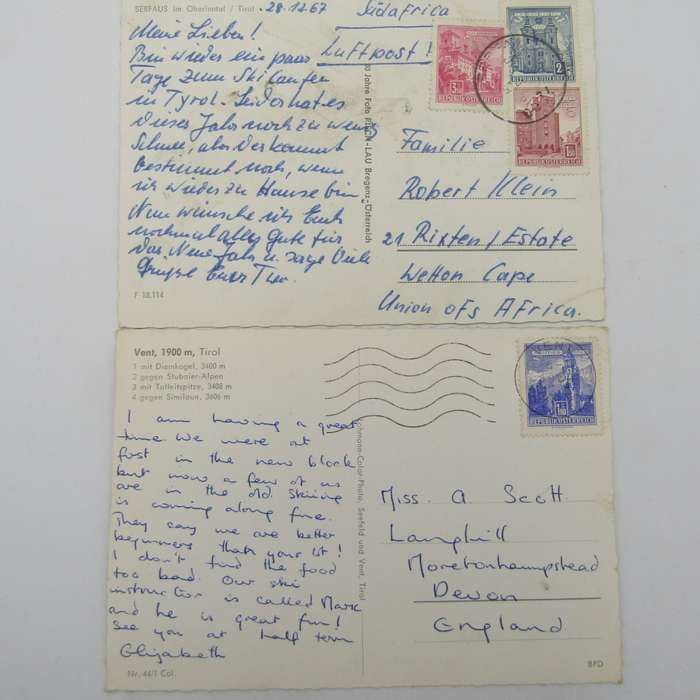 SERFAUS im Oberinntal / Tirol
28.12.67
Südafrica
Luftpost!
Meine Lieben!
Bin wieder ein paar
Tage zum Ski laufen
in Tyrol. Leider hat es
dieses Jahr noch zu wenig
Schnee, aber der kommt
bestimmt noch, wenn
wir wieder zu Hause bin
Nun wünsche ich Euch
nochmal alles gute für
das Neue Jahr u. sage Viele
Grüsse Euer
F 18.114
Jahre Foto RISCH-LAU Bregenz-Österreich
REPUBLIK ÖSTERREICH
2
REPUBLIK ÖSTERREICH
1.50
REPUBLIK ÖSTERREICH
Familie
Robert Klein
21 Rixten/Estate
Wetton Cape
Union ofs Africa.
Vent, 1900 m, Tirol
1 mit Diemkogel, 3400 m
2 gegen Stubaier-Alpen
3 mit Talleitspitze, 3408 m
4 gegen Similaun, 3606 m
I am having a great
time we were at
first in the new block
but now a few of us
are in the old. Skiing
is coming along fine.
They say we are better
beginners thats your lot!
I don't find the food
too bad. Our ski
instructor is called Mark
and he is great fun!
See you at half term
Elizabeth
Nr. 44/1 Col.
Lohmann-Color-Photo, Seefeld und Vent, Tirol
REPUBLIK ÖSTERREICH
Miss. A. Scott.
Langhill
Moretonhampstead
Devon
England
BPD